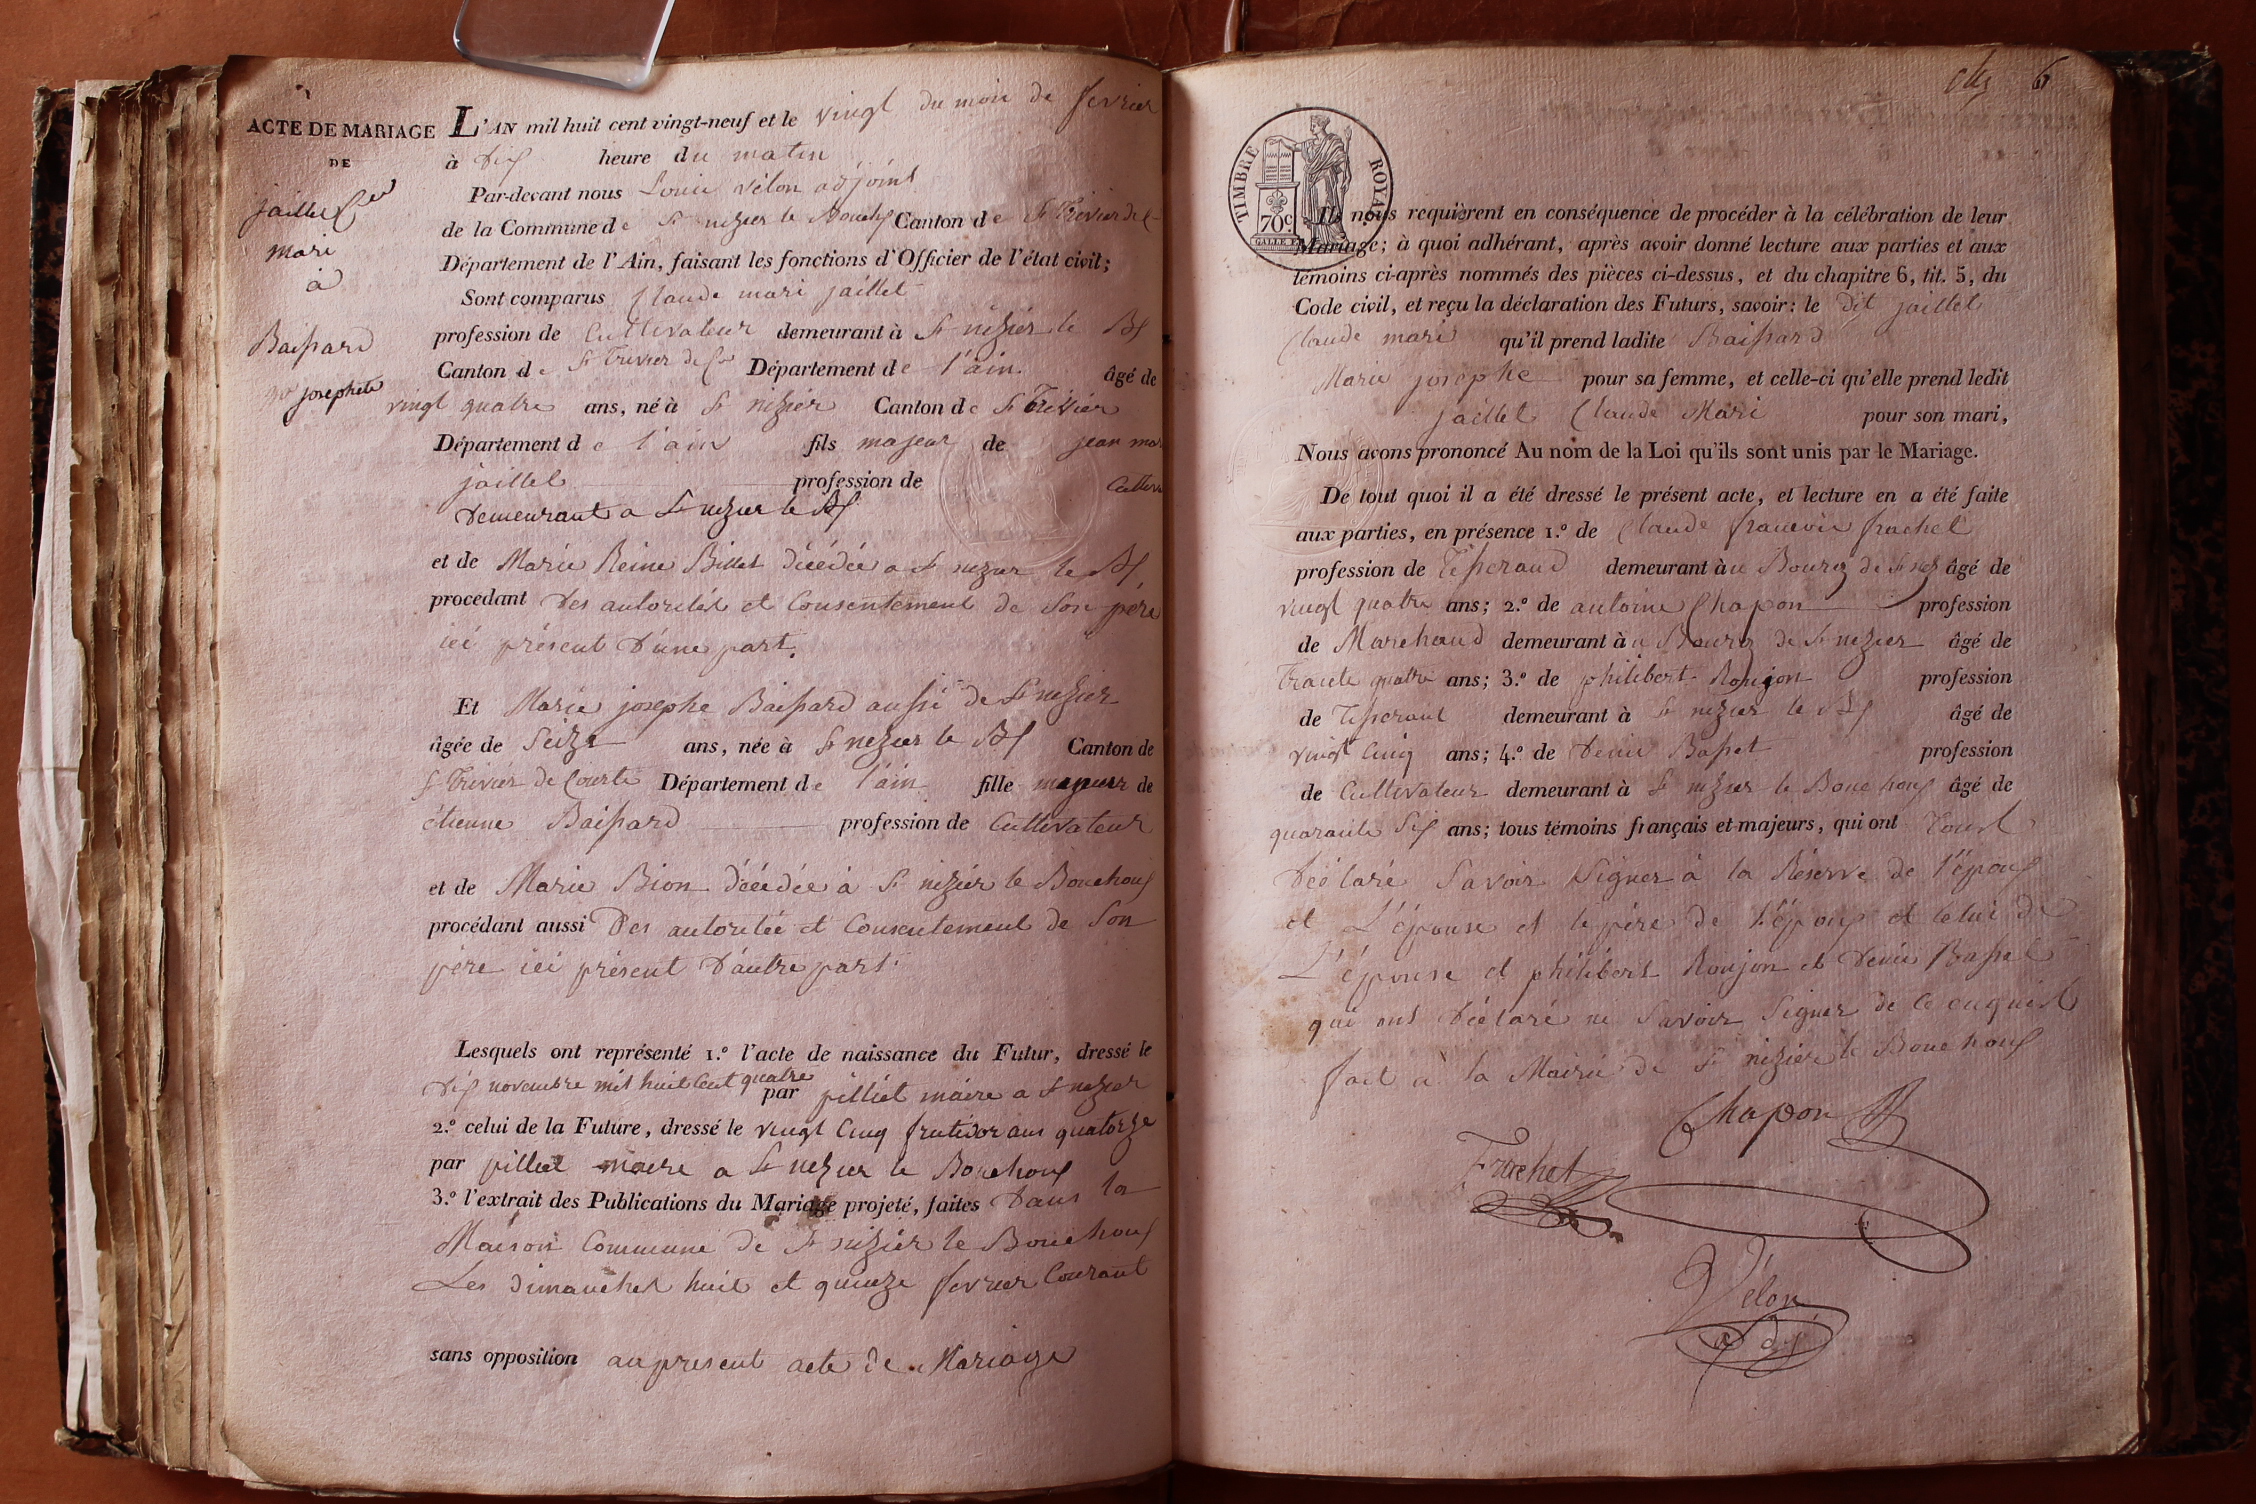 ACTE DE MARIAGE
DE
jaillet Cde
mari
à
Baissard
me josephete
L'AN mil huit cent vingt-neuf et le vingt du mois de fevrier
à dix heure du matin
Par-devant nous Louis vélon adjoint
de la Commune de St nizier le Bouchx Canton de St Trivier de C
Département de l'Ain, faisant les fonctions d'Officier de l'état civil;
Sont comparus Claude mari jaillet
profession de Cultivateur demeurant à St nizier le Bx
Canton de St Trivier de Ctes Département de l'ain. âgé de
vingt quatre ans, né à St nizier Canton de St Trivier
Département de l'ain fils majeur de jean mar
jaillet profession de Cultiva
demeurant a St nizier le Bx
et de Marie Reine Billet décédée a St nizier le Bx
procedant des autorités et Consentement de Son père
ici présent d'une part.
Et Marie josephe Baissard aussi de St nizier
âgée de Seize ans, née à St nezier le Bx Canton de
St Trivier de Courte Département de l'ain fille majeur de
étienne Baissard profession de Cultivateur
et de Marie Bion décédée à St nizier le Bouchoux
procédant aussi Des autoritée et Consentement de Son
père ici présent d'autre part.
Lesquels ont représenté 1.º l'acte de naissance du Futur, dressé le
dix novembre mil huit Cent quatre par pilliet maire a St nizier
2.º celui de la Future, dressé le vingt Cinq frutidor ans quatorze
par pilliet maire a St nezier le Bouchoux
3.º l'extrait des Publications du Mariage projeté, faites Dans la
Maison Commune de St nizier le Bouchoux
Les dimanchet huit et quinze fevrier Courant
sans opposition au present acte de Mariage
6
TIMBRE ROYAL
70c.
Ils nous requièrent en conséquence de procéder à la célébration de leur
Mariage; à quoi adhérant, après avoir donné lecture aux parties et aux
témoins ci-après nommés des pièces ci-dessus, et du chapitre 6, tit. 5, du
Code civil, et reçu la déclaration des Futurs, savoir: le dit jaillet
Claude mari qu'il prend ladite Baissard
Marie josephe pour sa femme, et celle-ci qu'elle prend ledit
jaillet Claude Mari pour son mari,
Nous avons prononcé Au nom de la Loi qu'ils sont unis par le Mariage.
De tout quoi il a été dressé le présent acte, et lecture en a été faite
aux parties, en présence 1.º de Claude francois frachet
profession de Tisserand demeurant à u Bourg de St nez âgé de
vingt quatre ans; 2.º de antoine Chapon profession
de Marchand demeurant à u Bourg de St nezier âgé de
Trante quatre ans; 3.º de philibert Roujon profession
de Tisserant demeurant à St nizier le Bx âgé de
vingt Cinq ans; 4.º de Denis Basset profession
de Cultivateur demeurant à St nizier le Bouchoux âgé de
quarante Six ans; tous témoins français et majeurs, qui ont Tous
Déclaré Savoir Signer à la Réserve de l'époux
et L'épouse et le père de l'époux et celui de
L'épouse et philibert Roujon et Denis Basset
qui ont déclaré ne Savoir Signer de ce enquist
fait à la Mairie de St nizier le Bouchoux
Chapon
Frachet
Vélon
adj